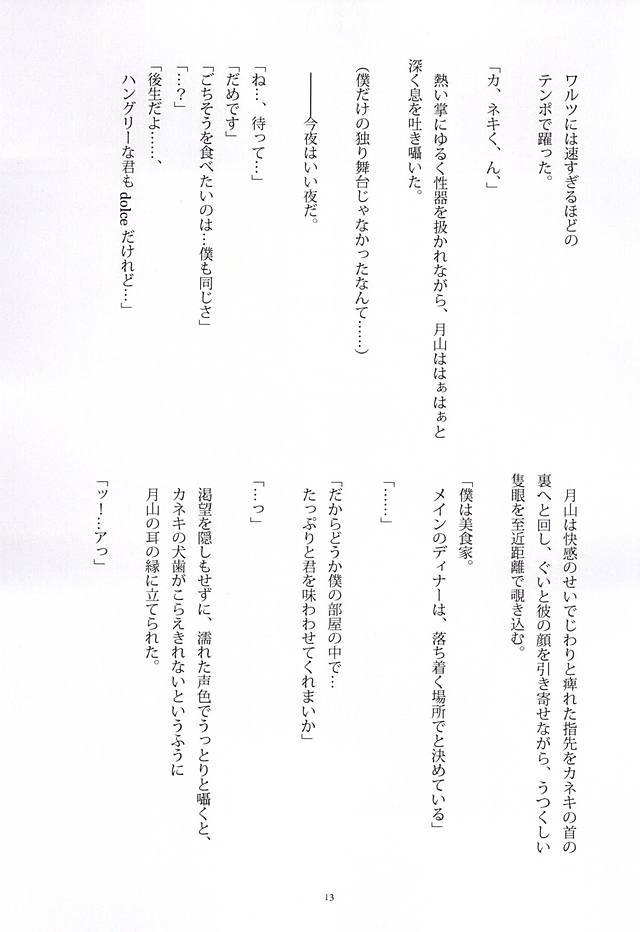 ワルツには速すぎるほどの
テンポで躍った。
「カ、ネキく、ん、」
熱い掌にゆるく性器を扱かれながら、月山ははぁはぁと
深く息を吐き囁いた。
(僕だけの独り舞台じゃなかったなんて……)
―――今夜はいい夜だ。
「ね…、待って…」
「だめです」
「ごちそうを食べたいのは…僕も同じさ」
「…?」
「後生だよ……、
ハングリーな君も dolce だけれど…」
月山は快感のせいでじわりと痺れた指先をカネキの首の
裏へと回し、ぐいと彼の顔を引き寄せながら、うつくしい
隻眼を至近距離で覗き込む。
「僕は美食家。
メインのディナーは、落ち着く場所でと決めている」
「……」
「だからどうか僕の部屋の中で…
たっぷりと君を味わわせてくれまいか」
「…っ」
渇望を隠しもせずに、濡れた声色でうっとりと囁くと、
カネキの犬歯がこらえきれないというふうに
月山の耳の縁に立てられた。
「ッ！…アっ」
13